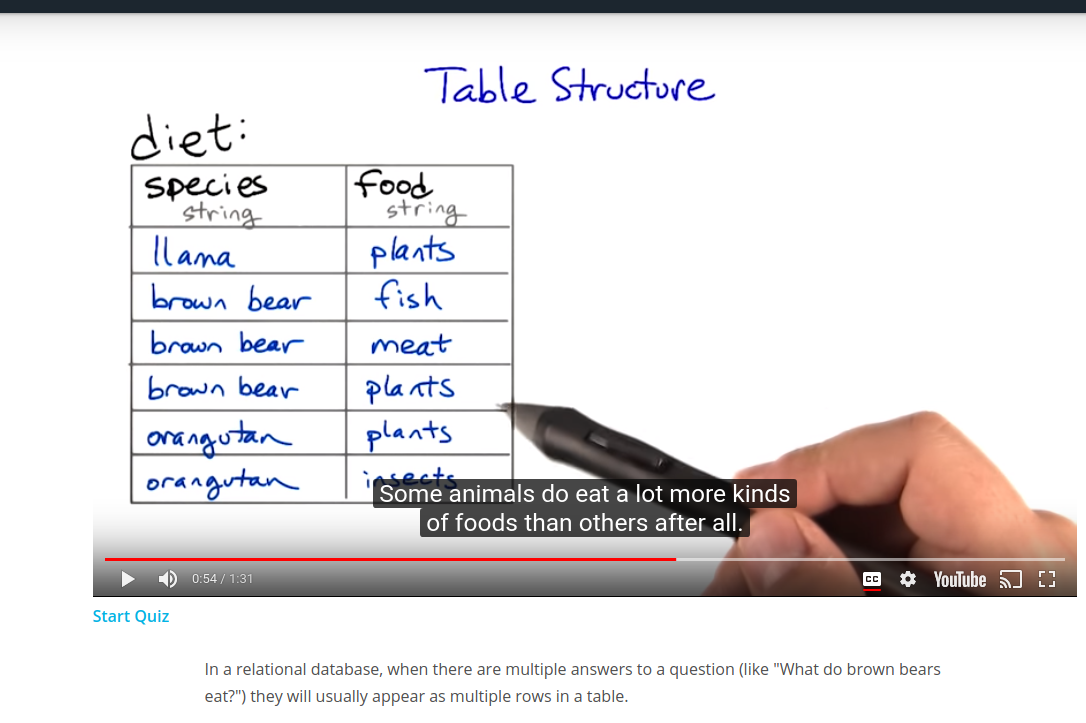 Table Structure
diet:
species food
string string
llama plants
brown bear fish
brown bear meat
brown bear plants
orangutan plants
orangutan insects
Some animals do eat a lot more kinds
of foods than others after all.
0:54 / 1:31 CC YouTube
Start Quiz
In a relational database, when there are multiple answers to a question (like "What do brown bears
eat?") they will usually appear as multiple rows in a table.